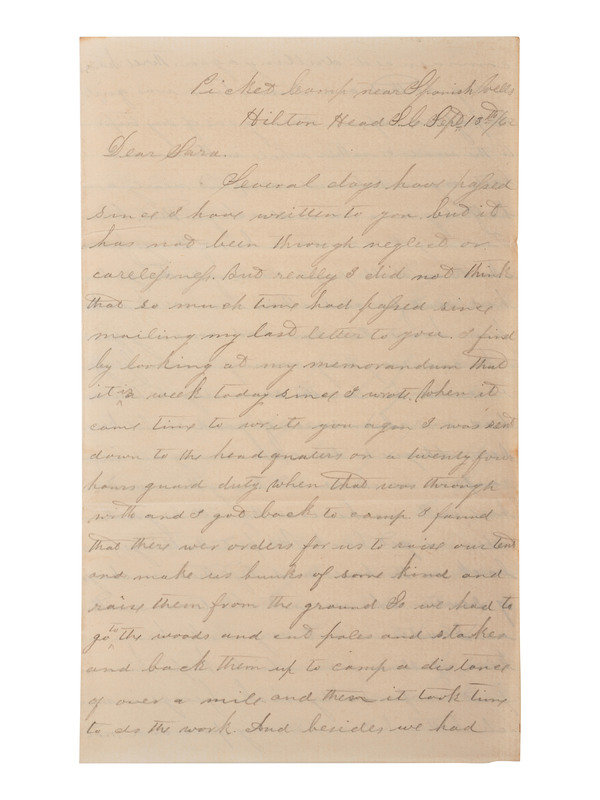 Picket Camp near Spanish Wells
Hilton Head S.C. Sept 13th/62
Dear Sara.
Several days have passed
since I have written to you but it
has not been through neglect or
carelessness. But really I did not think
that so much time had passed since
mailing my last letter to you. I find
by looking at my memorandum that
it is a week today since I wrote. When it
came time to write you again I was sent
down to the headquaters on a twenty four
hours guard duty. When that was through
with and I got back to camp I found
that there wer orders for us to raise our tents
and make us bunks of some kind and
raise them from the ground So we had to
go to the woods and cut poles and stakes
and back them up to camp a distance
of over a mile and then it took time
to do the work. And besides we had